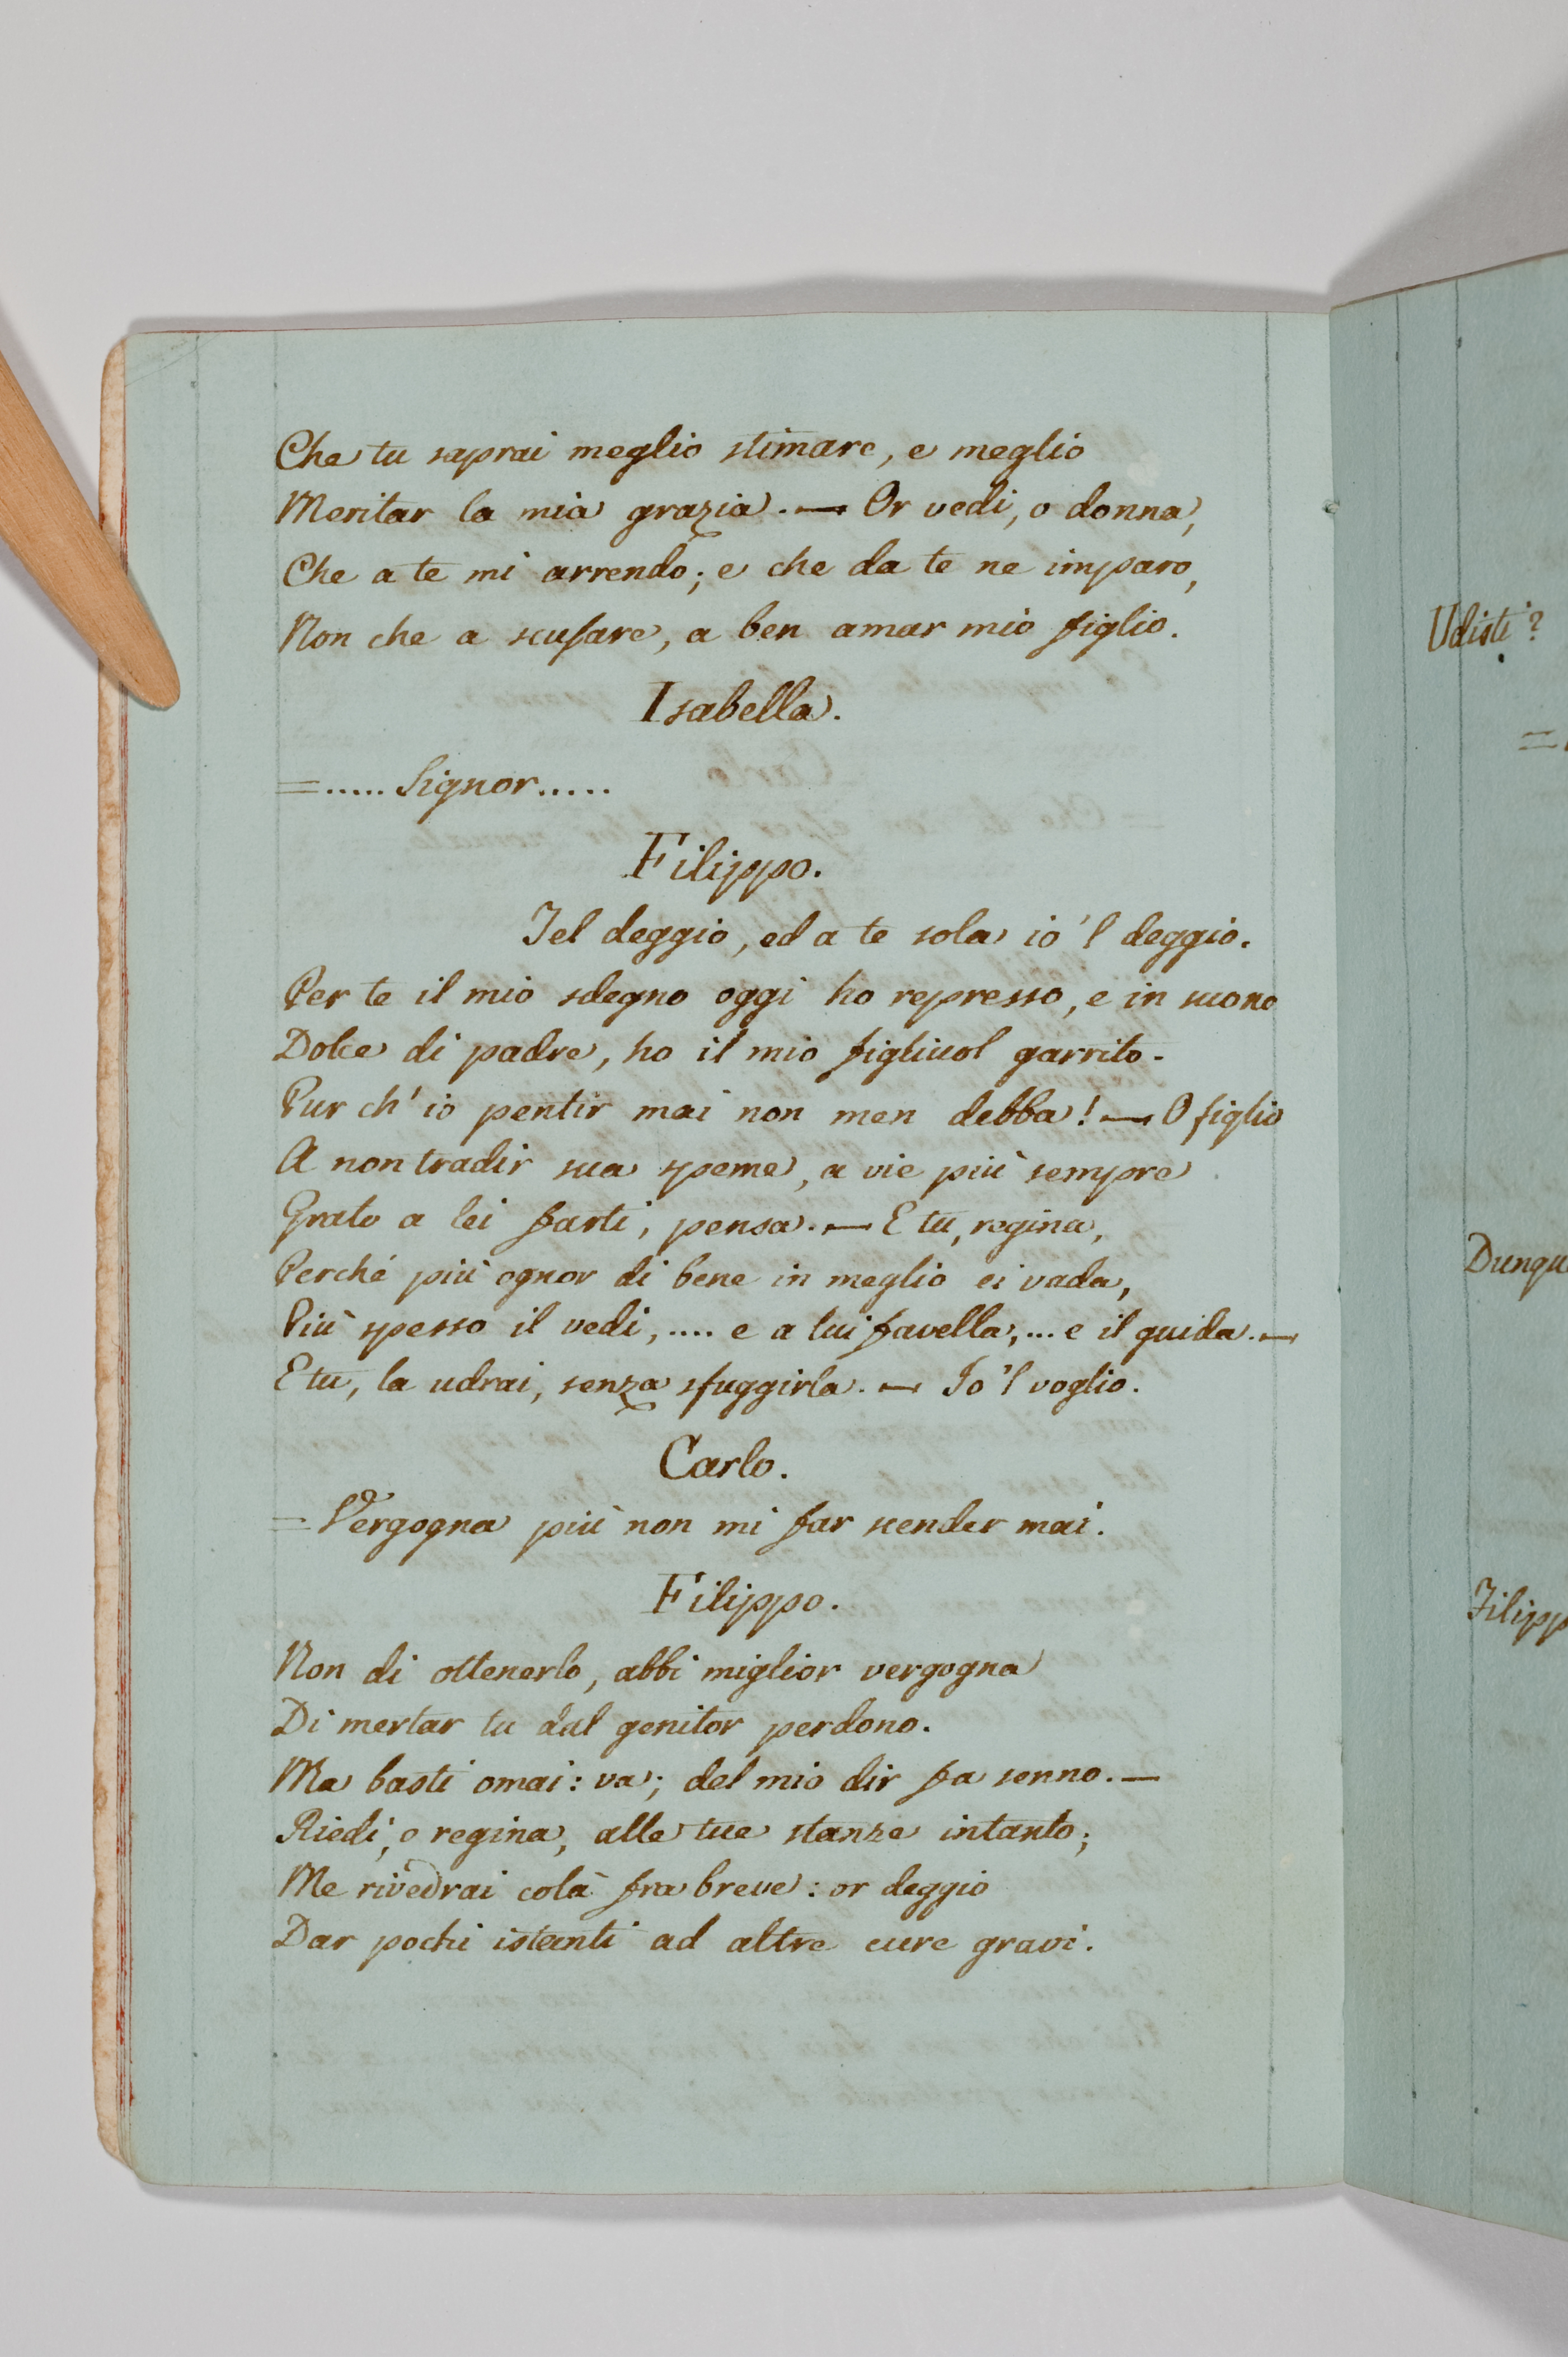 Che tu saprai meglio stimare, e meglio
Meritar la mia grazia. — Or vedi, o donna,
Che a te mi arrendo; e che da te ne imparo,
Non che a scusare, a ben amar mio figlio.
Isabella.
=..... Signor.....
Filippo.
Tel deggio, ed a te sola io 'l deggio.
Per te il mio sdegno oggi ho represso, e in suono
Dolce di padre, ho il mio figliuol garrito.
Pur ch' io pentir mai non men debba! — O figlio
A non tradir sua speme, a vie più sempre
Grato a lei farti, pensa. — E tu, regina,
Perché più ognor di bene in meglio ei vada,
Più spesso il vedi, .... e a lui favella, ... e il guida. —
E tu, la udrai, senza sfuggirla. — Io 'l voglio.
Carlo.
= Vergogna più non mi far scender mai.
Filippo.
Non di ottenerlo, abbi miglior vergogna
Di mertar tu dal genitor perdono.
Ma basti omai: va; del mio dir fa senno. —
Riedi, o regina, alle tue stanze intanto;
Me rivedrai colà fra breve: or deggio
Dar pochi istanti ad altre cure gravi.
Udisti?
=
Dunqu
Filipp